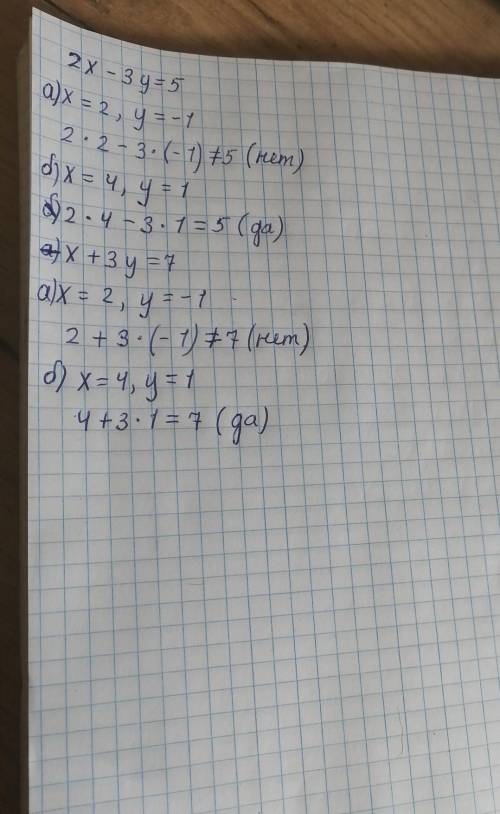 2x - 3y = 5
а) x = 2, y = -1
2 · 2 - 3 · (-1) ≠ 5 (нет)
б) x = 4, y = 1
2 · 4 - 3 · 1 = 5 (да)
x + 3y = 7
а) x = 2, y = -1
2 + 3 · (-1) ≠ 7 (нет)
б) x = 4, y = 1
4 + 3 · 1 = 7 (да)